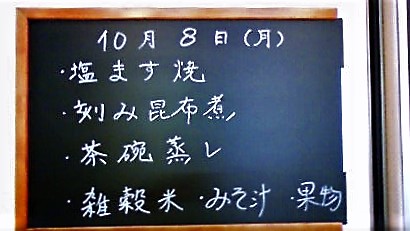 10月8日(月)
・塩ます焼
・刻み昆布煮
・茶碗蒸し
・雑穀米 ・みそ汁 ・果物